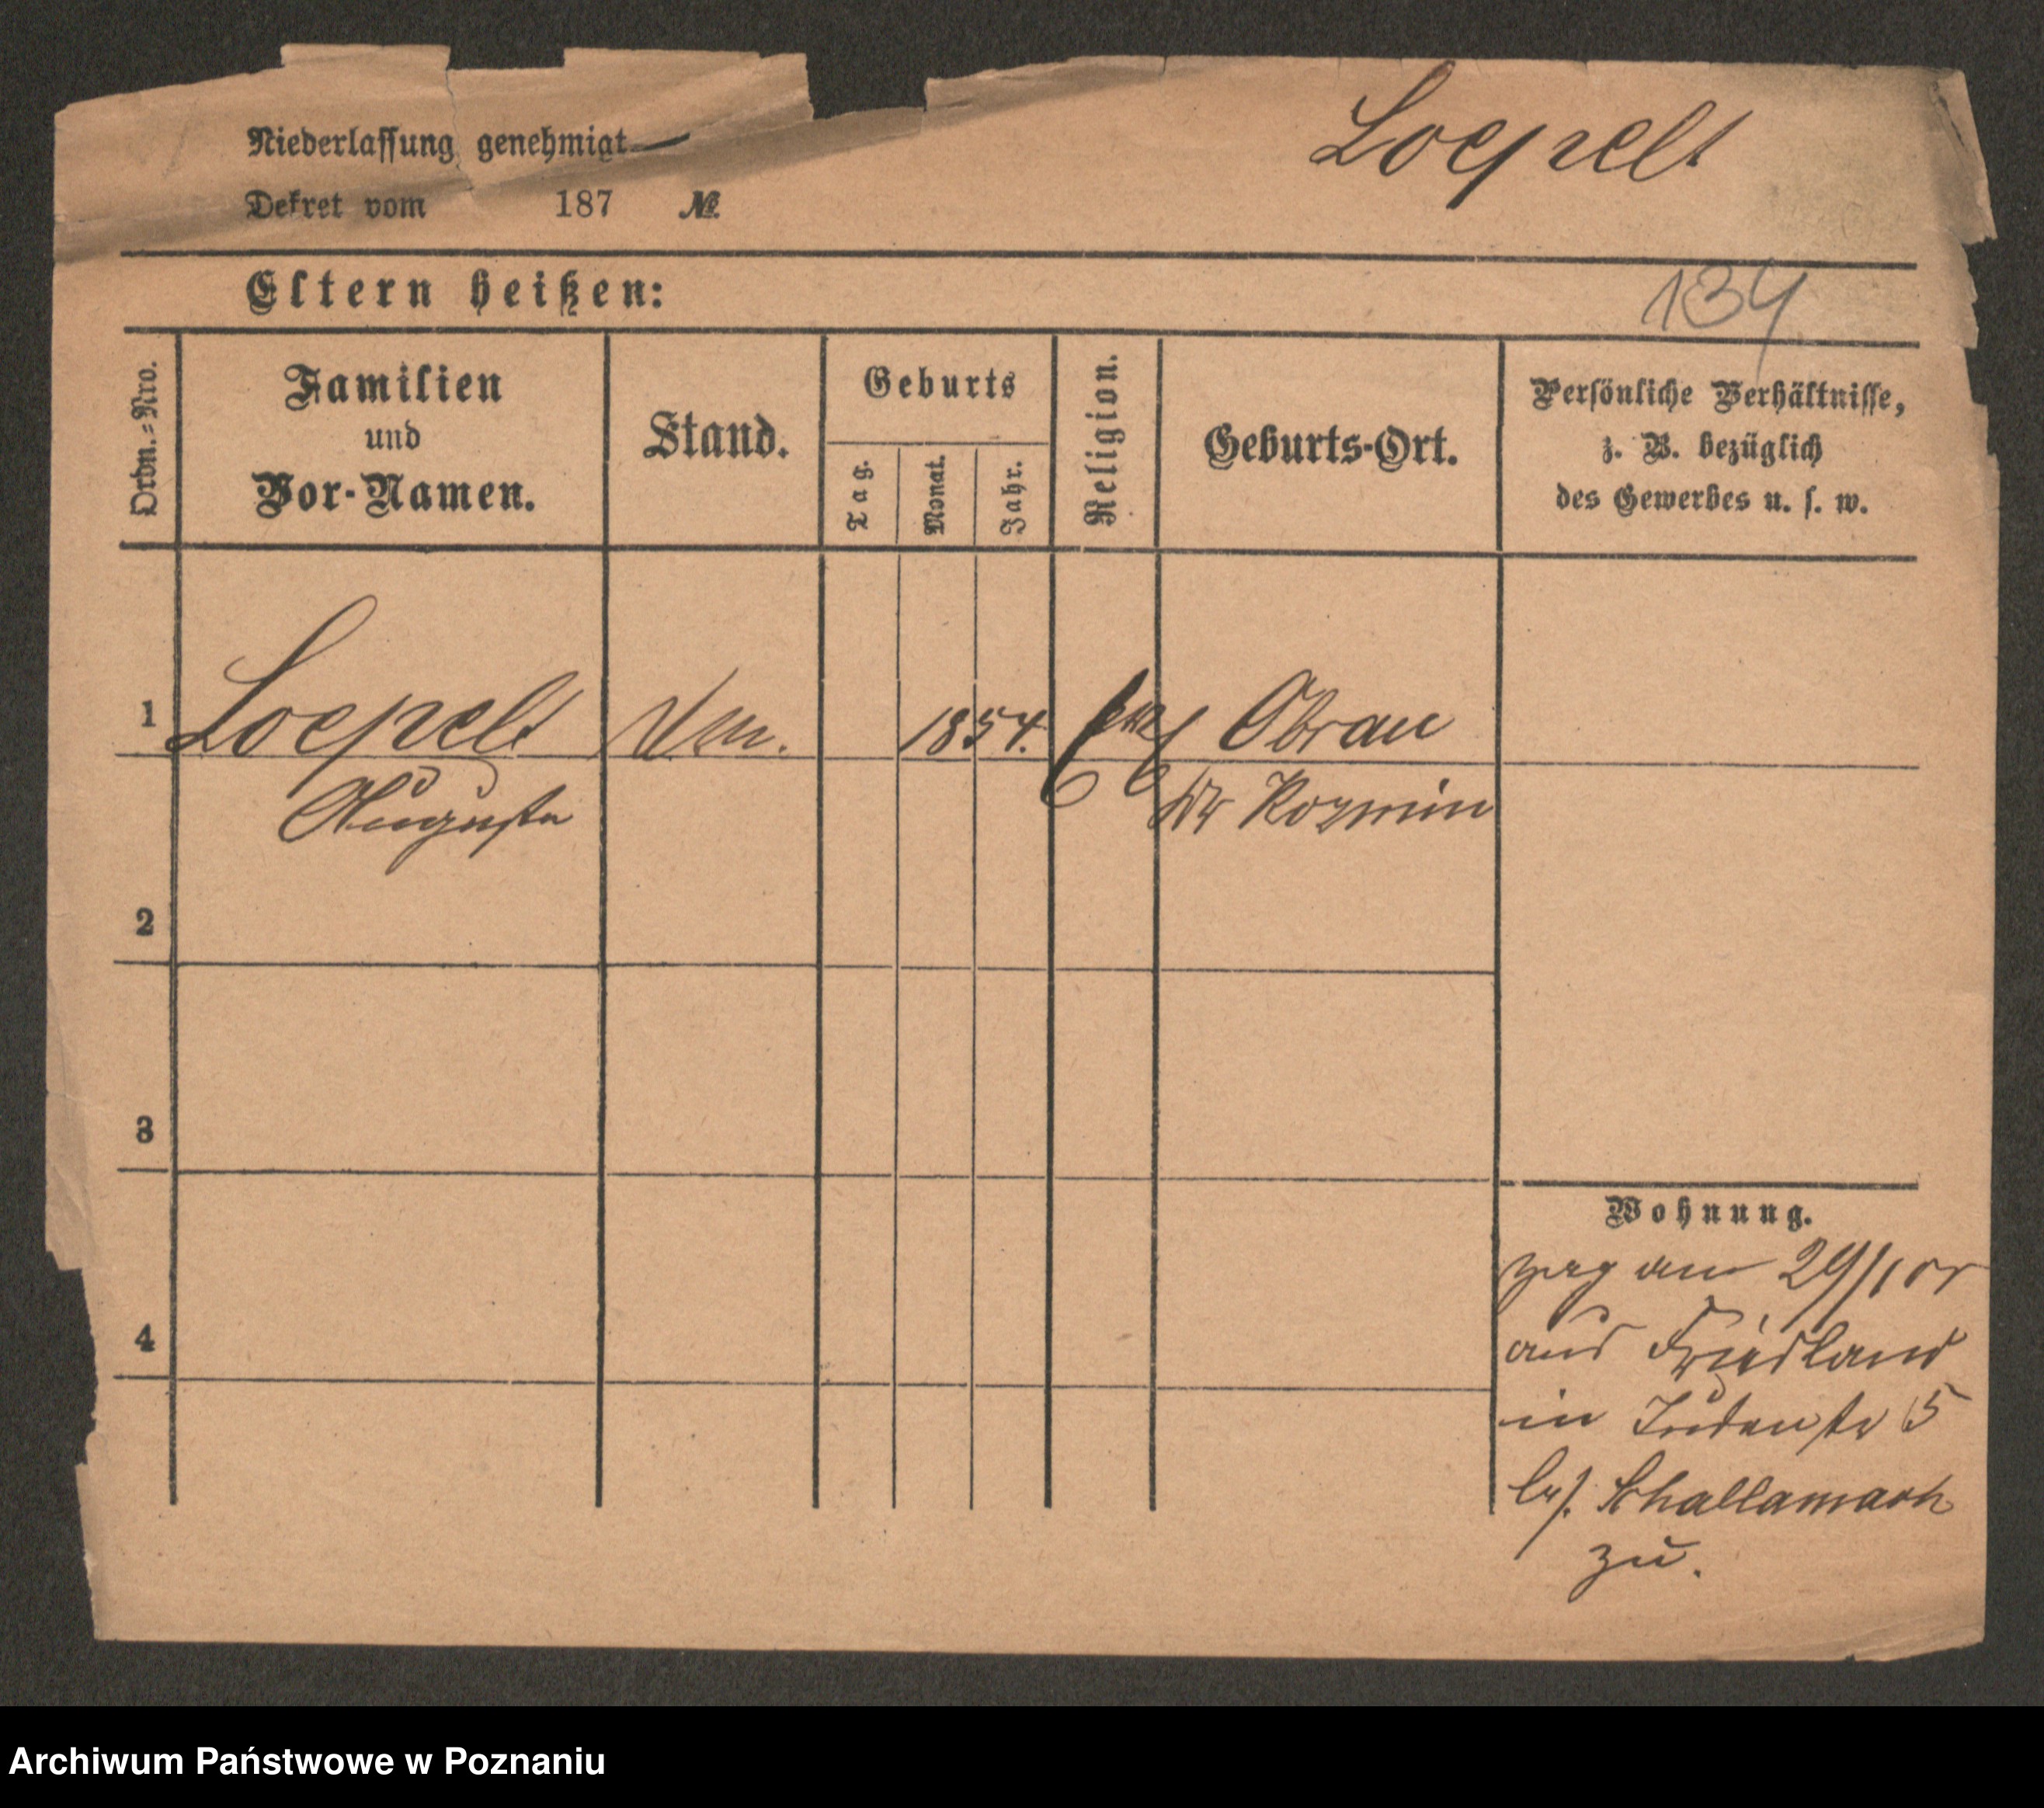 Loepelt
Niederlassung genehmigt
Dekret vom 187 №
Eltern heißen:
134
Ordn.=Nro.
Familien
und
Vor-Namen.
Stand.
Geburts
Tag.
Monat.
Jahr.
Religion.
Geburts-Ort.
Persönliche Verhältnisse,
z. B. bezüglich
des Gewerbes u. s. w.
1 Loepelt 1854. Obrau
Auguste Kr Kozmin
2
3
4
Wohnung.
zog am 29/1
aus Friedland
in Judenstr 5
bei Schallamach
zu.
Archiwum Państwowe w Poznaniu